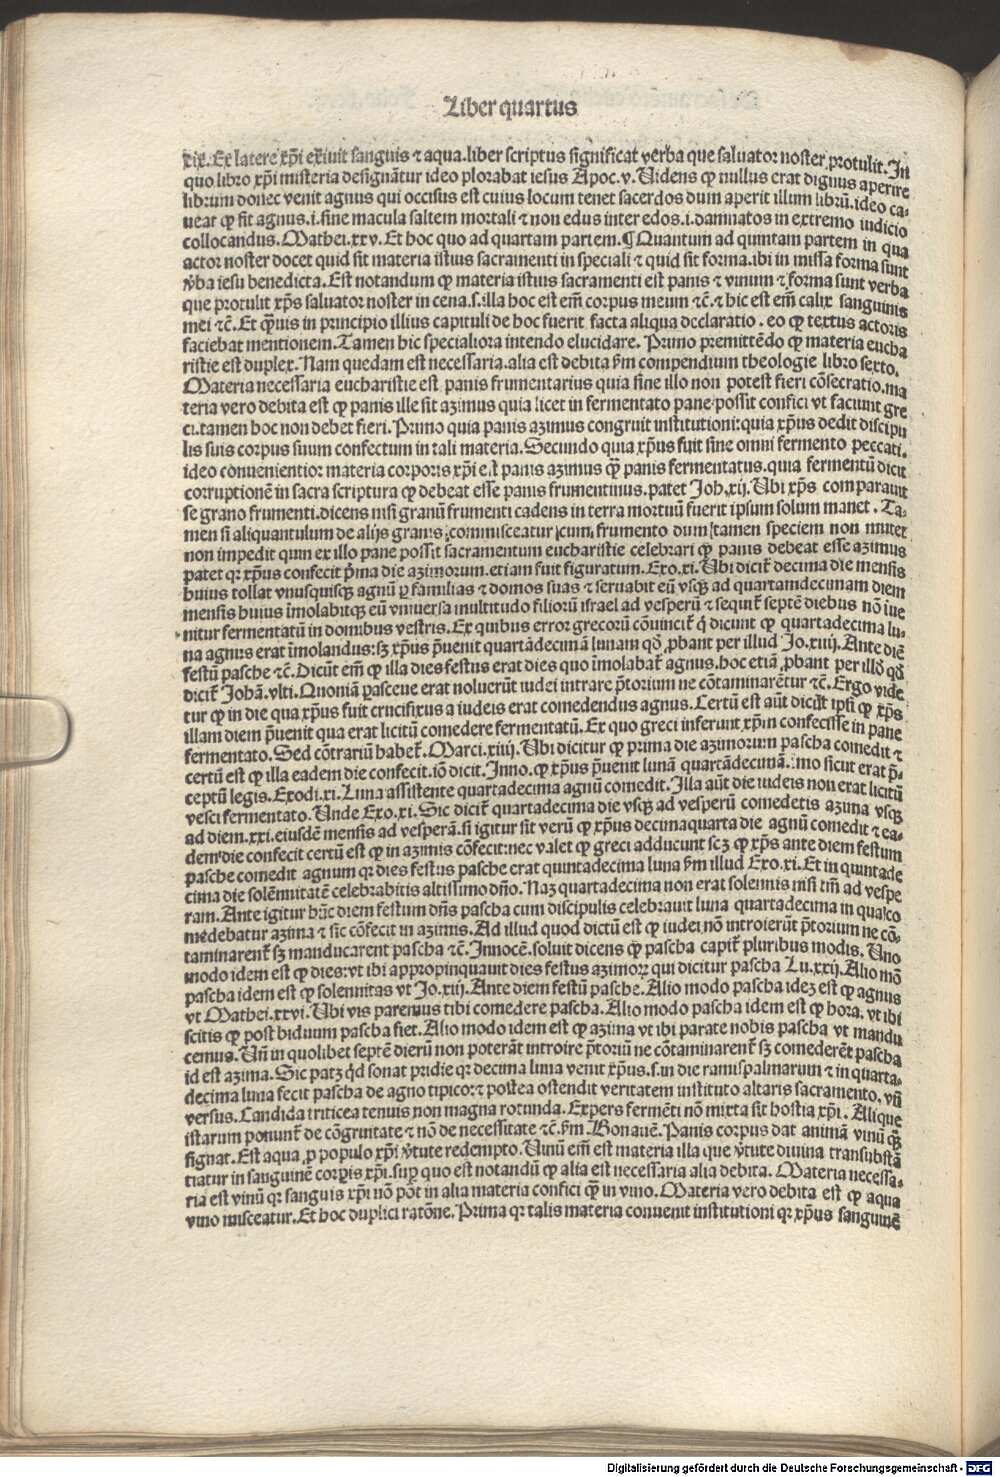 Liber quartus
xix. Ex latere xp̄i exiuit sanguis ⁊ aqua. liber scriptus significat verba que saluator noster protulit. In
quo libro xp̄i misteria designātur ideo plorabat iesus Apoc. v. Uidens ꝙ nullus erat dignus aperire
librum donec venit agnus qui occisus est cuius locum tenet sacerdos dum aperit illum librū. ideo ca-
ueat ꝙ sit agnus .i. sine macula saltem mortali ⁊ non edus inter edos .i. damnatos in extremo iudicio
collocandus. Mathei. xxv. Et hoc quo ad quartam partem. ¶ Quantum ad quintam partem in qua
actor noster docet quid sit materia istius sacramenti in speciali ⁊ quid sit forma. ibi in missa forma sunt
v̄ba iesu benedicta. Est notandum ꝙ materia istius sacramenti est panis ⁊ vinum ⁊ forma sunt verba
que protulit xp̄s saluator noster in cena .s. illa hoc est em̄ corpus meum ⁊c̄. ⁊ hic est em̄ calix sanguinis
mei ⁊c̄. Et q̄uis in principio illius capituli de hoc fuerit facta aliqua declaratio . eo ꝙ textus actoris
faciebat mentionem. Tamen hic specialiora intendo elucidare. Primo premittēdo ꝙ materia eucha
ristie est duplex. Nam quedam est necessaria. alia est debita s̄m compendium theologie libro sexto.
Materia necessaria eucharistie est panis frumentarius quia sine illo non potest fieri cōsecratio. ma
teria vero debita est ꝙ panis ille sit azimus quia licet in fermentato pane possit confici vt faciunt gre
ci. tamen hoc non debet fieri. Primo quia panis azimus congruit institutioni: quia xp̄us dedit discipu
lis suis corpus suum confectum in tali materia. Secundo quia xp̄us fuit sine omni fermento peccati.
ideo conuenientior materia corporis xp̄i est panis azimus q̄ꝫ panis fermentatus. quia fermentū dicit
corruptionē in sacra scriptura ꝙ debeat esse panis frumentinus. patet Joh. xij. Ubi xp̄s comparauit
se grano frumenti. dicens nisi granū frumenti cadens in terra mortuū fuerit ipsum solum manet . Ta-
men si aliquantulum de alijs granis commisceatur cum frumento dum tamen speciem non mutet
non impedit quin ex illo pane possit sacramentum eucharistie celebrari ꝙ panis debeat esse azimus
patet qr xp̄us confecit p̄ma die azimorum. etiam fuit figuratum. Exo. xi. Ubi dicit̄ decima die mensis
huius tollat vnusquisqꝫ agnū ꝑ familias ⁊ domos suas ⁊ seruabit eū vsqꝫ ad quartamdecimam diem
mensis huius īmolabitqꝫ eū vniuersa multitudo filiorū israel ad vesperū ⁊ sequit̄ septē diebus nō īue
nitur fermentatū in domibus vestris. Ex quibus error grecorū cōuincit̄ q̇ dicunt ꝙ quartadecima lu-
na agnus erat īmolandus: sꝫ xp̄us p̄uenit quartādecimā lunam qd̄ ꝓbant per illud Jo. xiij. Ante diē
festū pasche ⁊c̄. Dicūt em̄ ꝙ illa dies festus erat dies quo īmolabat̄ agnus. hoc etiā ꝓbant per illd̄ qd̄
dicit̄ Johā. vlti. Quoniā ꝑasceue erat noluerūt iudei intrare p̄torium ne cōtaminarētur ⁊c̄. Ergo vide
tur ꝙ in die qua xp̄us fuit crucifixus a iudeis erat comedendus agnus. Certū est aūt dicūt ip̄si ꝙ xp̄s
illam diem p̄uenit qua erat licitū comedere fermentatū. Ex quo greci inferunt xp̄m confecisse in pane
fermentato. Sed cōtrariū habet̄. Marci. xiiij. Ubi dicitur ꝙ prima die azimorum pascha comedit ⁊
certū est ꝙ illa eadem die confecit. iō dicit. Inno. ꝙ xp̄us p̄uenit lunā quartādecimā. imo sicut erat p̄-
ceptū legis. Exodi. xi. Luna assistente quartadecima agnū comedit. Illa aūt die iudeis non erat licitū
vesci fermentato. Unde Exo. xi. Sic dicit̄ quartadecima die vsqꝫ ad vesperū comedetis azima vsqꝫ
ad diem. xxi. eiusdē mensis ad vesperā. si igitur sit verū ꝙ xp̄us decimaquarta die agnū comedit ⁊ ea-
dem die confecit certū est ꝙ in azimis cōfecit: nec valet ꝙ greci adducunt scꝫ ꝙ xp̄s ante diem festum
pasche comedit agnum qr dies festus pasche erat quintadecima luna s̄m illud Exo. xi. Et in quintade
cima die solēnitatē celebrabitis altissimo dn̄o. Naꝫ quartadecima non erat solennis nisi tm̄ ad vespe
ram. Ante igitur hūc diem festum dn̄s pascha cum discipulis celebrauit luna quartadecima in qua co
medebatur azima ⁊ sic cōfecit in azimis. Ad illud quod dictū est ꝙ iudei nō introierūt p̄torium ne cō-
taminarent̄ sꝫ manducarent pascha ⁊c̄. Innocē. soluit dicens ꝙ pascha capit̄ pluribus modis. Uno
modo idem est ꝙ dies: vt ibi appropinquauit dies festus azimoꝝ qui dicitur pascha Lu. xxij. Alio mō
pascha idem est ꝙ solennitas vt Jo. xiij. Ante diem festū pasche. Alio modo pascha ideꝫ est ꝙ agnus
vt Mathei. xxvi. Ubi vis paremus tibi comedere pascha. Alio modo pascha idem est ꝙ hora. vt ibi
scitis ꝙ post biduum pascha fiet. Alio modo idem est ꝙ azima vt ibi parate nobis pascha vt mandu
cemus. Un̄ in quolibet septē dierū non poterāt introire p̄toriū ne cōtaminarent̄ sꝫ comederēt pascha
id est azima. Sic patꝫ q̇d sonat pridie qr decima luna venit xp̄us .s. in die ramispalmarum ⁊ in quarta-
decima luna fecit pascha de agno tipico: ⁊ postea ostendit veritatem instituto altaris sacramento. vn̄
versus. Candida triticea tenuis non magna rotunda. Expers fermēti nō mixta sit hostia xp̄i. Alique
istarum ponunt̄ de cōgruitate ⁊ nō de necessitate ⁊c̄. s̄m Bonauē. Panis corpus dat animā vinū q̄ꝫ
signat. Est aqua ꝓ populo xp̄i v̄tute redempto. Uinū em̄ est materia illa que v̄tute diuina transubstā
tiatur in sanguinē corꝑis xp̄i. suꝑ quo est notandū ꝙ alia est necessaria alia debita. Materia necessa-
ria est vinū qr sanguis xp̄i nō pōt in alia materia confici q̄ꝫ in vino. Materia vero debita est ꝙ aqua
vino misceatur. Et hoc duplici ratōne. Prima qr talis materia conuenit institutioni qr xp̄us sanguinē
Digitalisierung gefördert durch die Deutsche Forschungsgemeinschaft - DFG